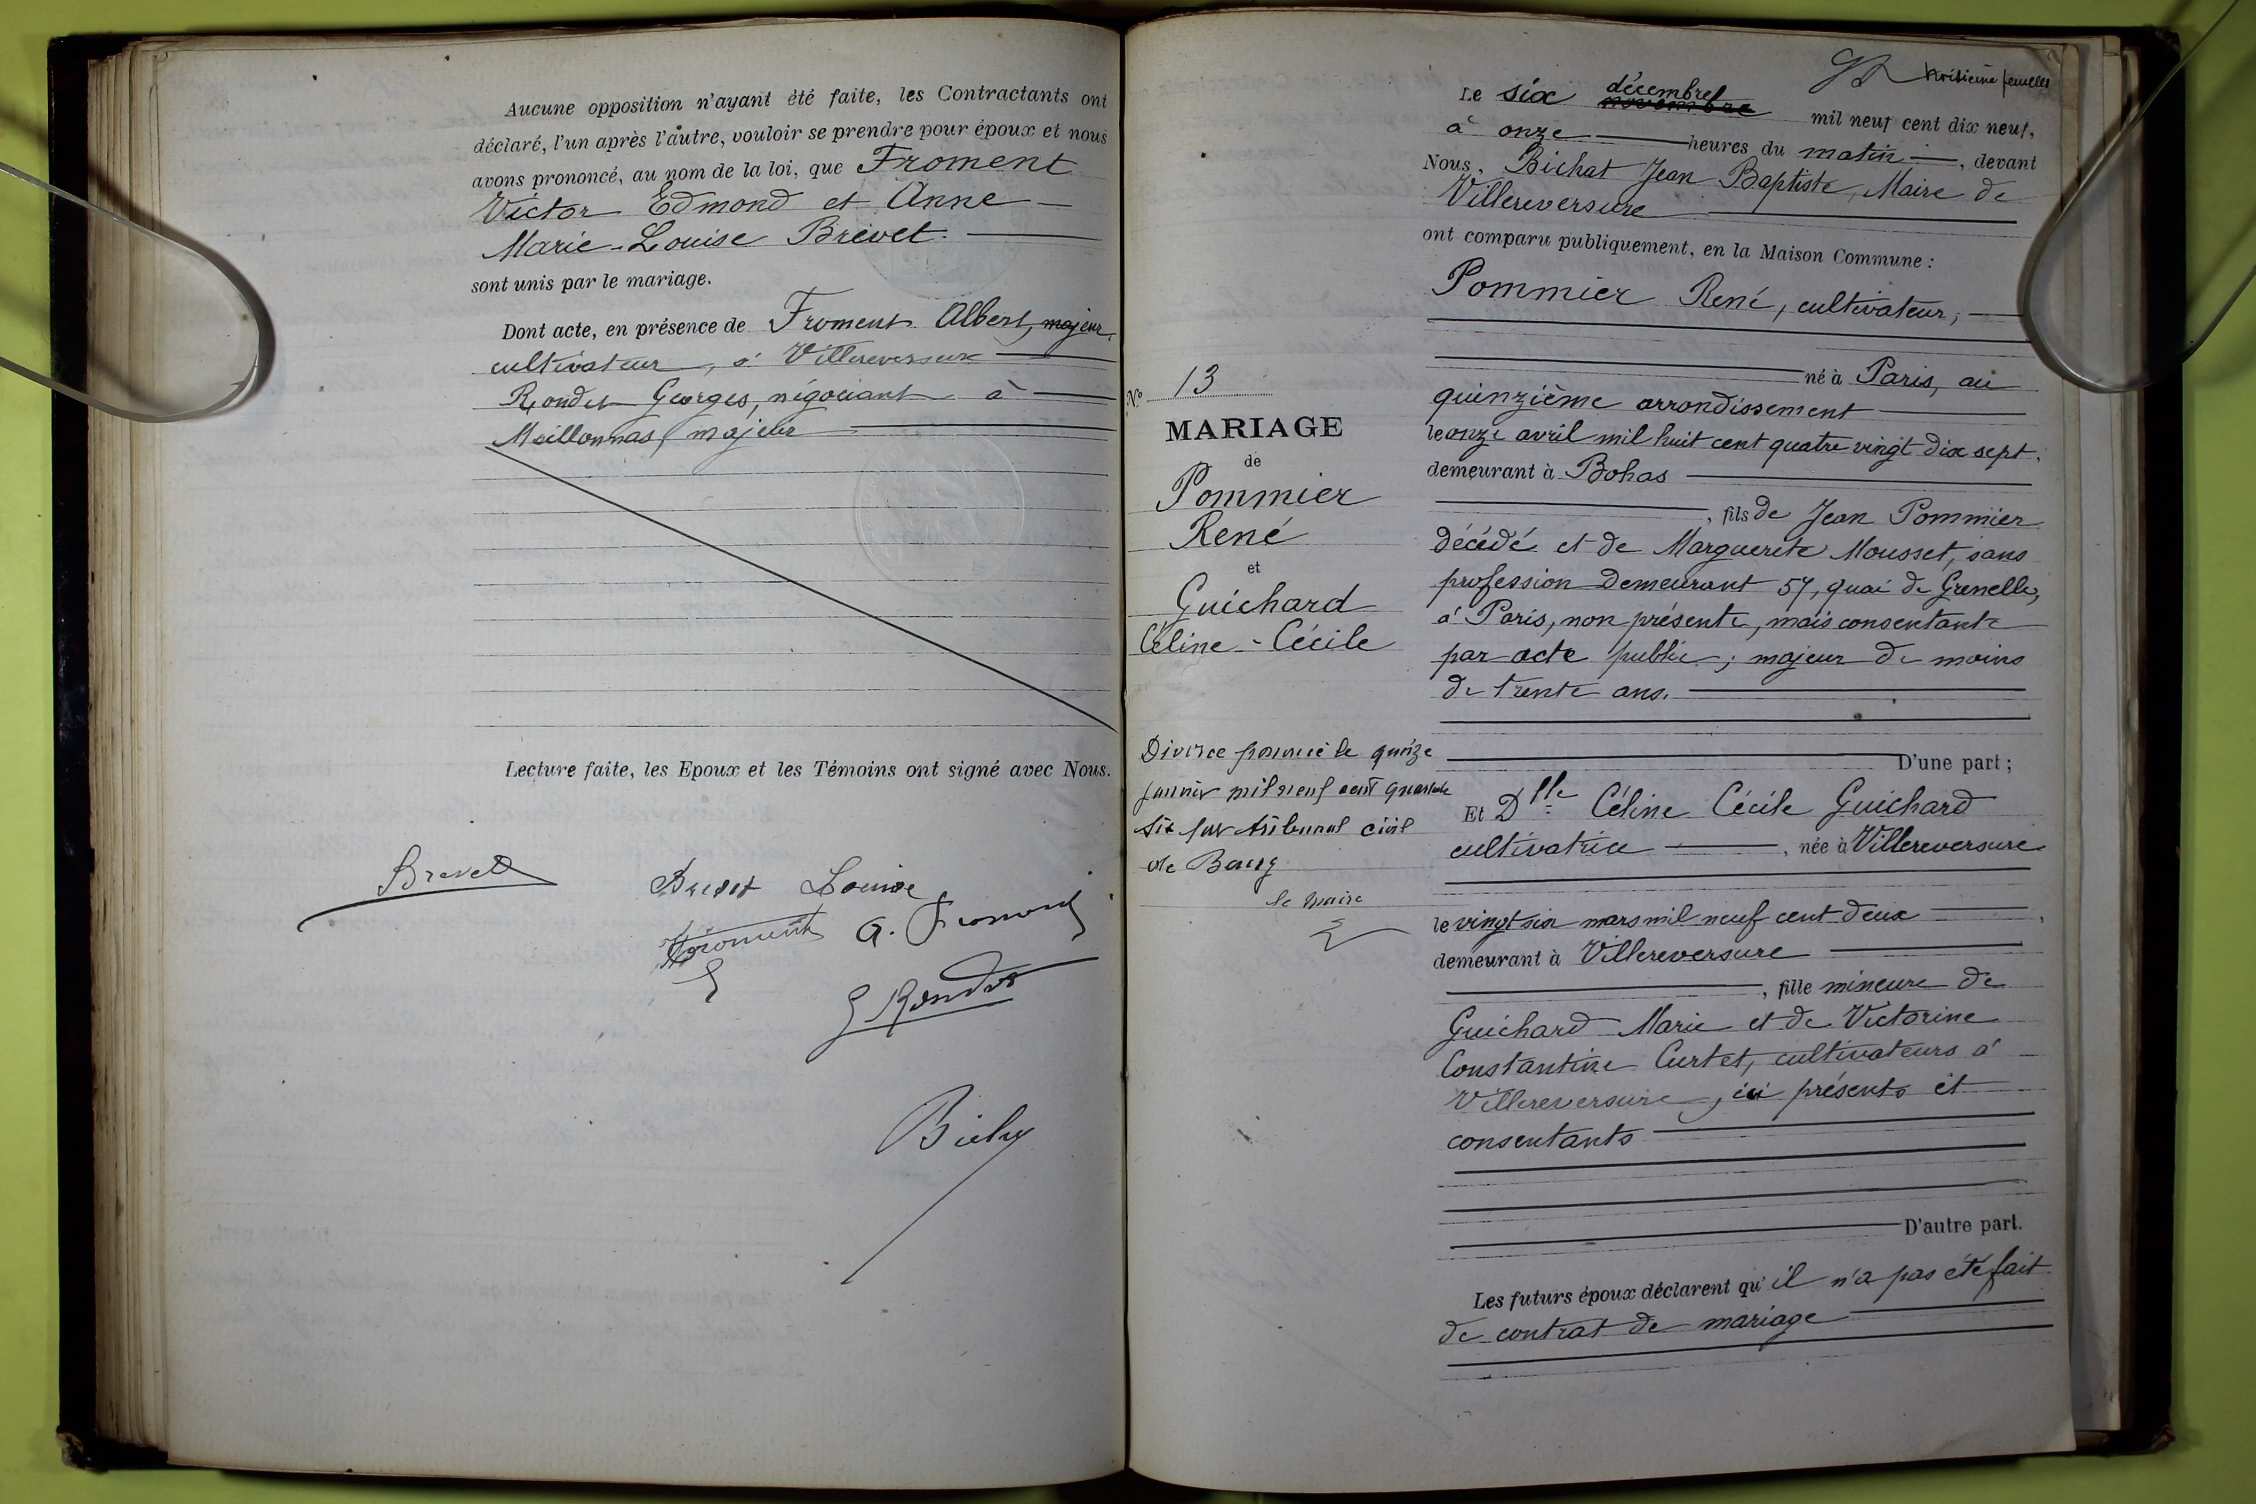 Aucune opposition n'ayant été faite, les Contractants ont
déclaré, l'un après l'autre, vouloir se prendre pour époux et nous
avons prononcé, au nom de la loi, que Froment
Victor Edmond et Anne
Marie-Louise Brevet.
sont unis par le mariage.
Dont acte, en présence de Froment Albert, majeur,
cultivateur, à Villereversure
Rondet Georges, négociant à
Meillonnas, majeur
Lecture faite, les Epoux et les Témoins ont signé avec Nous.
Brevet
Brevet Louise
Froment
A. Froment
G Rondet
troisième feuillet
Le six novembre décembre mil neuf cent dix neuf,
à onze heures du matin, devant
Nous, Bichat Jean Baptiste, Maire de
Villereversure
ont comparu publiquement, en la Maison Commune :
Pommier René, cultivateur,
né à Paris, au
quinzième arrondissement
le onze avril mil huit cent quatre vingt dix sept.
demeurant à Bohas
, fils de Jean Pommier
décédé et de Marguerite Mousset, sans
profession demeurant 57, quai de Grenelle,
à Paris, non présente, mais consentante
par acte public; majeur de moins
de trente ans.
D'une part ;
Et Dlle Céline Cécile Guichard
cultivatrice, née à Villereversure
le vingt six mars mil neuf cent deux
demeurant à Villereversure
, fille mineure de
Guichard Marie et de Victorine
Constantine Curtet, cultivateurs à
Villereversure, ici présents et
consentants
D'autre part.
Les futurs époux déclarent qu'il n'a pas été fait
de contrat de mariage
N° 13
MARIAGE
de
Pommier
René
et
Guichard
Céline-Cécile
Divorce prononcé le quinze
janvier mil neuf cent quarante
six par tribunal civil
de Bourg
le maire